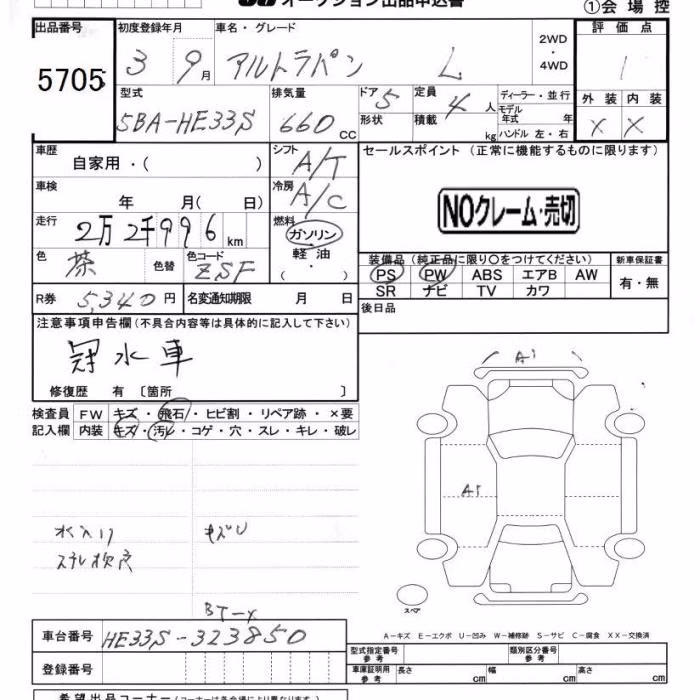 オークション出品申込書 ①会場控
出品番号 初度登録年月 車名・グレード 2WD・4WD 評価点
5705 3 9月 アルトラパン L 1
型式 排気量 ドア 定員 ディーラー・並行 外装 内装
5BA-HE33S 660cc 5 4人 モデル年式 年 X X
形状 積載 kg ハンドル 左・右
車歴 シフト セールスポイント (正常に機能するものに限ります)
自家用・( ) A/T
車検 冷房
年 月(日) A/C NOクレーム・売切
走行 燃料
2万2千996km ガソリン
色 色替 色コード 軽油 装備品(純正品に限り○をつけてください) 新車保証書
茶 ZSF (・) PS PW ABS エアB AW 有・無
R券 5,340円 名変通知期限 月 日 SR ナビ TV カワ
後日品
注意事項申告欄(不具合内容等は具体的に記入して下さい)
冠水車
修復歴 有 〔箇所 〕
A1
検査員 FW キズ・飛石・ヒビ割・リペア跡・×要
記入欄 内装 キズ・汚レ・コゲ・穴・スレ・キレ・破レ
A1
キズU
スペア
A-キズ E-エクボ U-凹み W-補修跡 S-サビ C-腐食 XX-交換済
車台番号 HE33S-323850
型式指定番号 参考 類別区分番号 参考
登録番号 車庫証明用 参考 長さ cm 幅 cm 高さ cm
希望出品コーナー